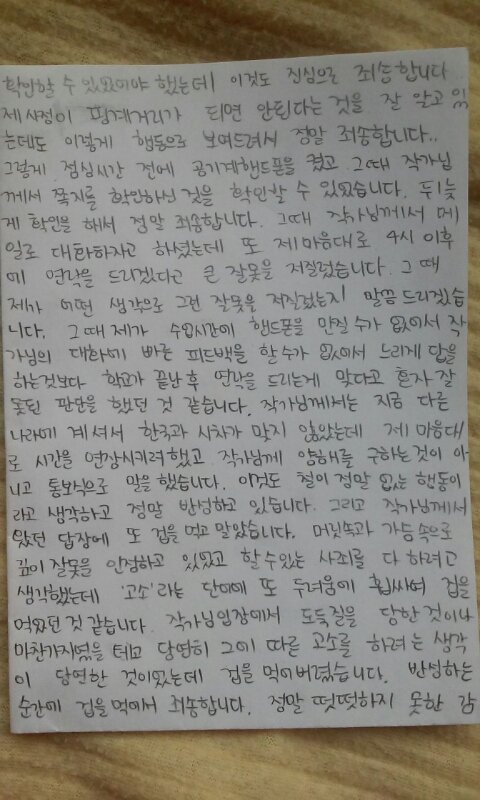 확인할 수 있었어야 했는데 이것도 진심으로 죄송합니다
제 사정이 핑계거리가 되면 안된다는 것을 잘 알고 있
는데도 이렇게 행동으로 보여드려서 정말 죄송합니다..
그렇게 점심시간 전에 공기계핸드폰을 켰고 그때 작가님
께서 쪽지를 확인하신 것을 확인할 수 있었습니다. 뒤늦
게 확인을 해서 정말 죄송합니다. 그때 작가님께서 메
일로 대화하자고 하셨는데 또 제 마음대로 4시 이후
에 연락을 드리겠다고 큰 잘못을 저질렀습니다. 그 때
제가 어떤 생각으로 그런 잘못을 저질렀는지 말씀 드리겠습
니다. 그 때 제가 수업시간에 핸드폰을 만질 수가 없어서 작
가님의 대화에 빠른 피드백을 할 수가 없어서 느리게 답을
하는것보다 학교가 끝난 후 연락을 드리는게 맞다고 혼자 잘
못된 판단을 했던 것 같습니다. 작가님께서는 지금 다른
나라에 계셔서 한국과 시차가 맞지 않았는데 제 마음대
로 시간을 연장시키려 했고 작가님께 양해를 구하는것이 아
니고 통보식으로 말을 했습니다. 이것도 철이 정말 없는 행동이
라고 생각하고 정말 반성하고 있습니다. 그리고 작가님께서
왔던 답장에 또 겁을 먹고 말았습니다. 머릿속과 가슴속으로
깊이 잘못을 인정하고 있었고 할 수 있는 사죄를 다 하려고
생각했는데 '고소'라는 단어에 또 두려움에 휩싸여 겁을
먹었던 것 같습니다. 작가님입장에서 도둑질을 당한 것이나
마찬가지였을 테고 당연히 그에 따른 고소를 하려는 생각
이 당연한 것이었는데 겁을 먹어버렸습니다. 반성하는
순간에 겁을 먹어서 죄송합니다. 정말 떳떳하지 못한 감